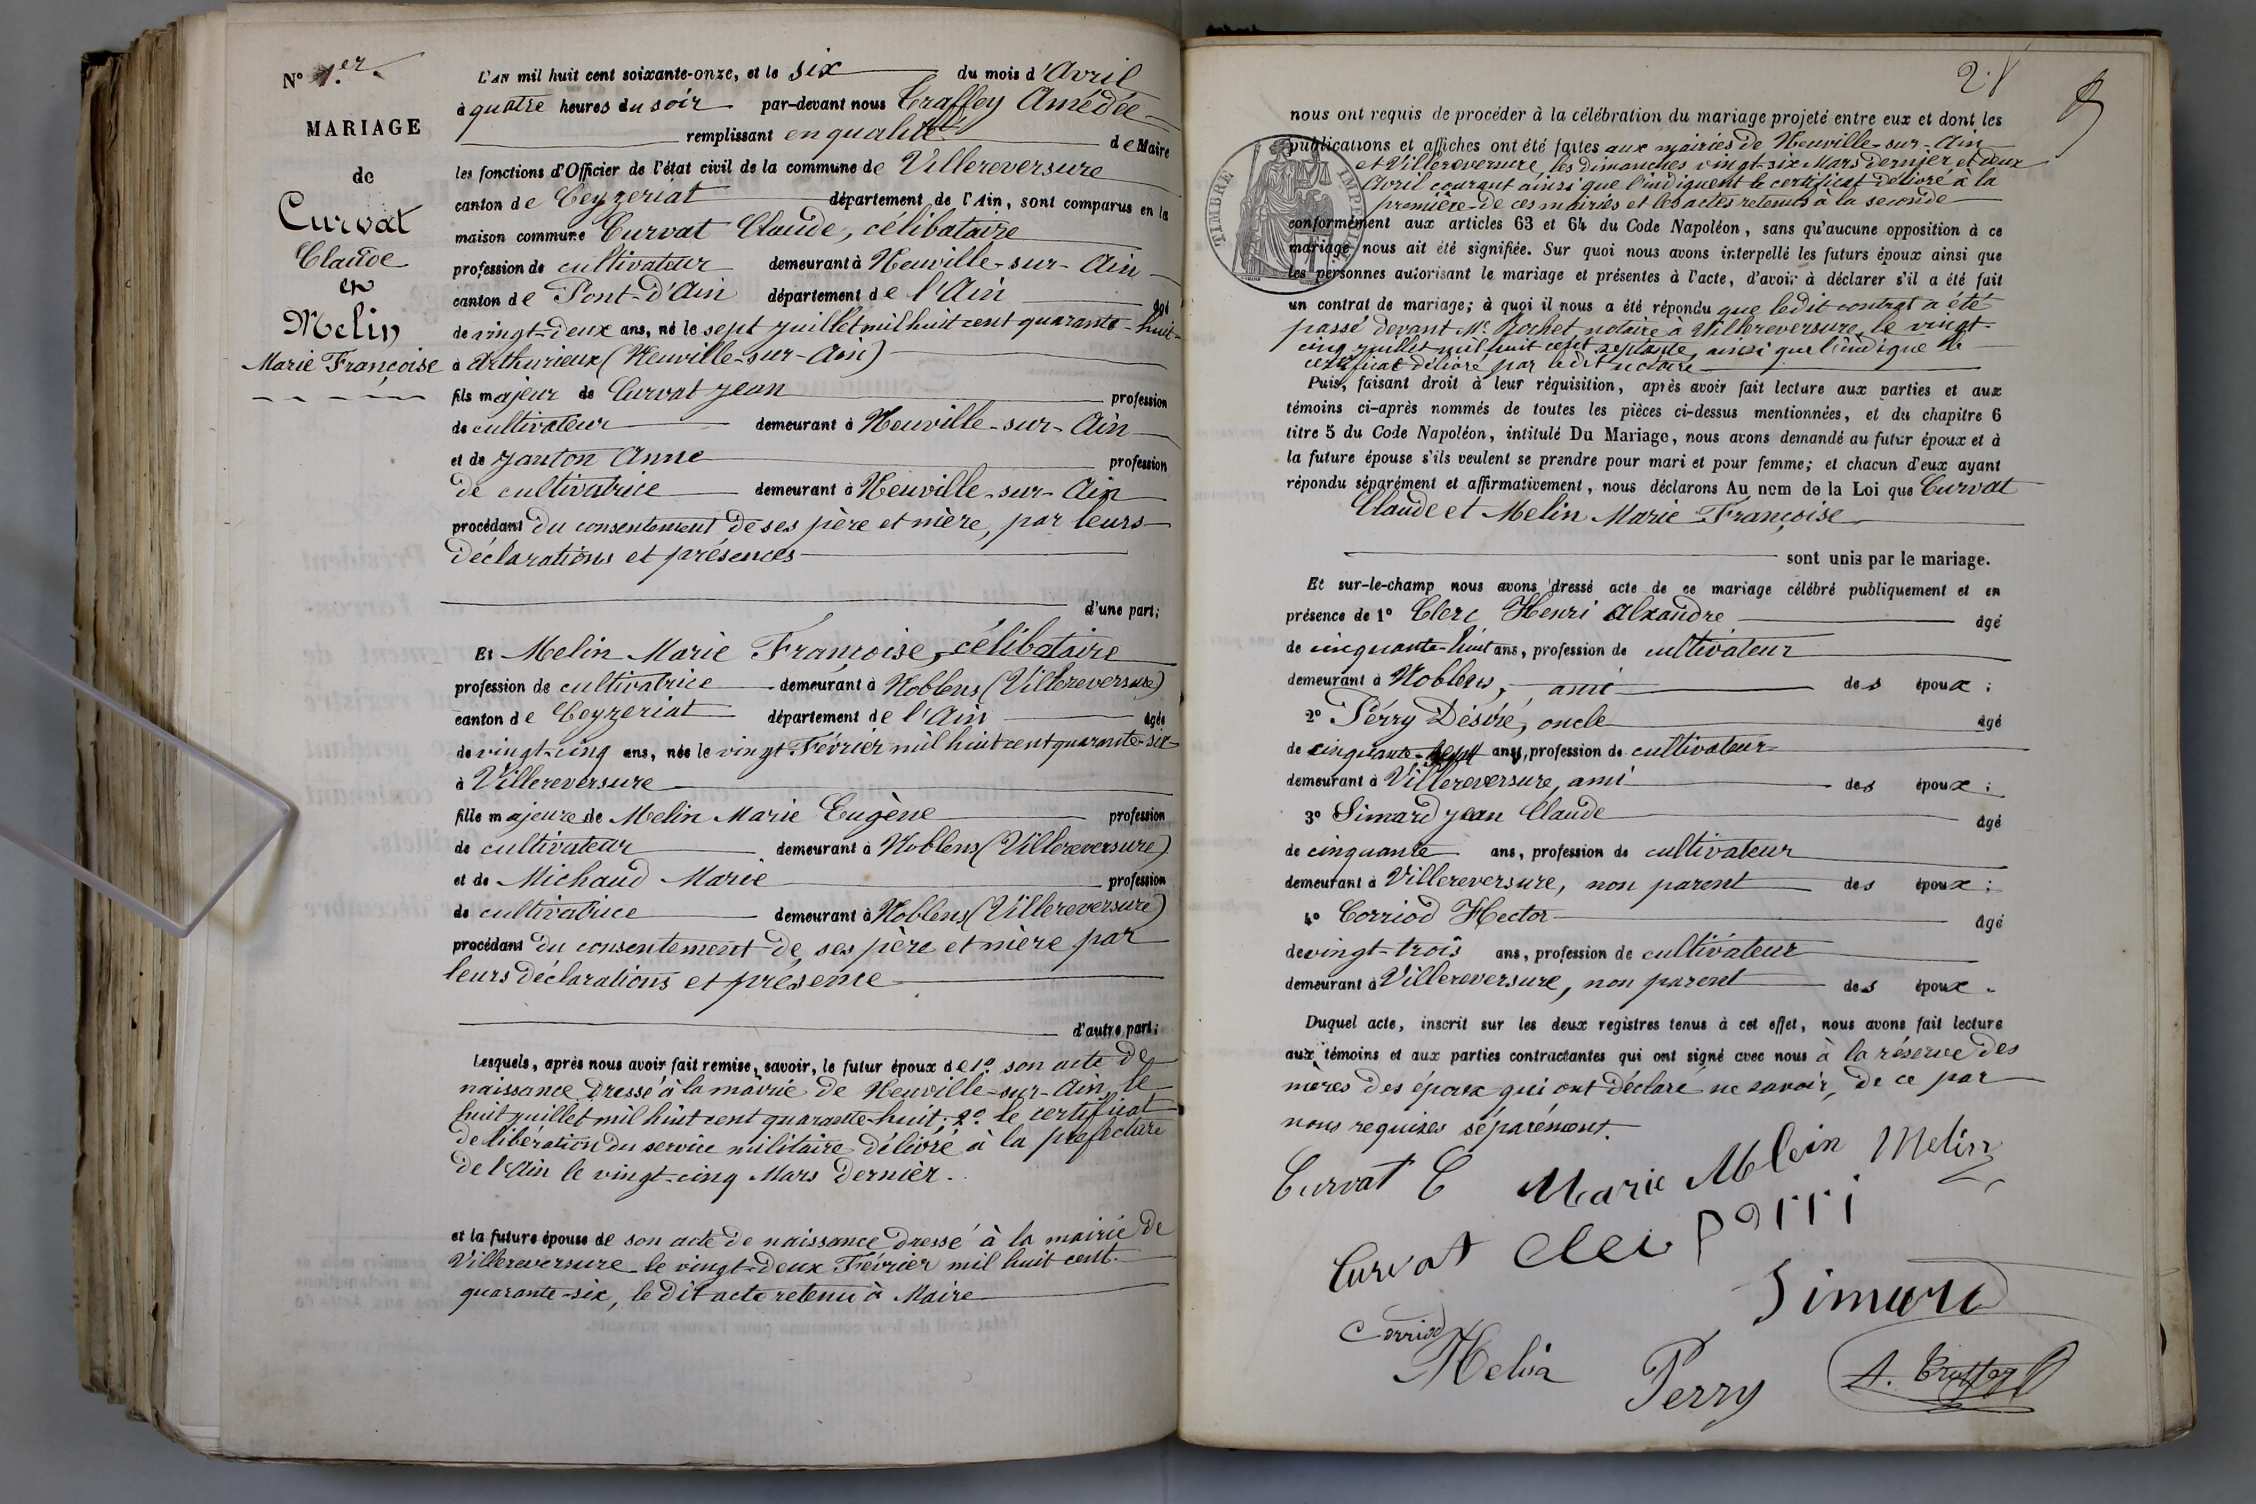 N° 1.er
MARIAGE
de
Curvat
Claude
et
Melin
Marie Françoise
L'AN mil huit cent soixante-onze, et le six du mois d'Avril
à quatre heures du soir par-devant nous Traffey Amédée
remplissant en qualité de Maire
les fonctions d'Officier de l'état civil de la commune de Villereversure
canton de Ceyzeriat département de l'Ain, sont comparus en la
maison commune Curvat Claude, célibataire
profession de cultivateur demeurant à Neuville-sur-Ain
canton de Pont-d'Ain département de l'Ain âgé
de vingt-deux ans, né le sept juillet mil huit cent quarante-huit
à Arthurieux (Neuville-sur-Ain)
fils majeur de Curvat Jean profession
de cultivateur demeurant à Neuville-sur-Ain
et de Janton Anne profession
de cultivatrice demeurant à Neuville-sur-Ain
procédant du consentement de ses père et mère, par leurs
déclarations et présences
d'une part;
Et Melin Marie Françoise, célibataire
profession de cultivatrice demeurant à Noblens (Villereversure)
canton de Ceyzeriat département de l'Ain âgée
de vingt-cinq ans, née le vingt Février mil huit cent quarante-six
à Villereversure
fille majeure de Melin Marie Eugène profession
de cultivateur demeurant à Noblens (Villereversure)
et de Michaud Marie profession
de cultivatrice demeurant à Noblens (Villereversure)
procédant du consentement de ses père et mère par
leurs déclarations et présence
d'autre part;
Lesquels, après nous avoir fait remise, savoir, le futur époux de 1° son acte de
naissance dressé à la mairie de Neuville-sur-Ain, le
huit juillet mil huit cent quarante-huit; 2° le certificat
de libération du service militaire délivré à la préfecture
de l'Ain le vingt-cinq Mars dernier.
et la future épouse de son acte de naissance dressé à la mairie de
Villereversure le vingt-deux Février mil huit cent
quarante-six, le dit acte retenu à Maire
2.
nous ont requis de procéder à la célébration du mariage projeté entre eux et dont les
publications et affiches ont été faites aux mairies de Neuville-sur-Ain
et Villereversure, les Dimanches vingt-six Mars dernier et deux
Avril courant ainsi que l'indiquent le certificat délivré à la
première de ces mairies et les actes retenus à la seconde
TIMBRE IMPERIAL
conformément aux articles 63 et 64 du Code Napoléon, sans qu'aucune opposition à ce
mariage nous ait été signifiée. Sur quoi nous avons interpellé les futurs époux ainsi que
les personnes autorisant le mariage et présentes à l'acte, d'avoir à déclarer s'il a été fait
un contrat de mariage; à quoi il nous a été répondu que ledit contrat a été
passé devant Me. Rochet, notaire à Villereversure, le vingt-
cinq juillet mil huit cent septante, ainsi que l'indique le
certificat délivré par le dit notaire
Puis, faisant droit à leur réquisition, après avoir fait lecture aux parties et aux
témoins ci-après nommés de toutes les pièces ci-dessus mentionnées, et du chapitre 6
titre 5 du Code Napoléon, intitulé Du Mariage, nous avons demandé au futur époux et à
la future épouse s'ils veulent se prendre pour mari et pour femme; et chacun d'eux ayant
répondu séparément et affirmativement, nous déclarons Au nom de la Loi que Curvat
Claude et Melin Marie Françoise
sont unis par le mariage.
Et sur-le-champ nous avons dressé acte de ce mariage célébré publiquement et en
présence de 1° Clerc Henri Alxandre âgé
de cinquante-huit ans, profession de cultivateur
demeurant à Noblens, ami des époux;
2° Pérry Désiré, oncle âgé
de cinquante-sept ans, profession de cultivateur
demeurant à Villereversure, ami des époux;
3° Simard Jean Claude âgé
de cinquante ans, profession de cultivateur
demeurant à Villereversure, non parent des époux;
4° Corriod Hector âgé
de vingt-trois ans, profession de cultivateur
demeurant à Villereversure, non parent des époux.
Duquel acte, inscrit sur les deux registres tenus à cet effet, nous avons fait lecture
aux témoins et aux parties contractantes qui ont signé avec nous à la réserve des
mères des époux qui ont déclaré ne savoir, de ce par
nous requises séparément.
Curvat C Marie Mlein Melin
Curvat Clei parri
Simard
Corriod
Melin Perry A. Traffey